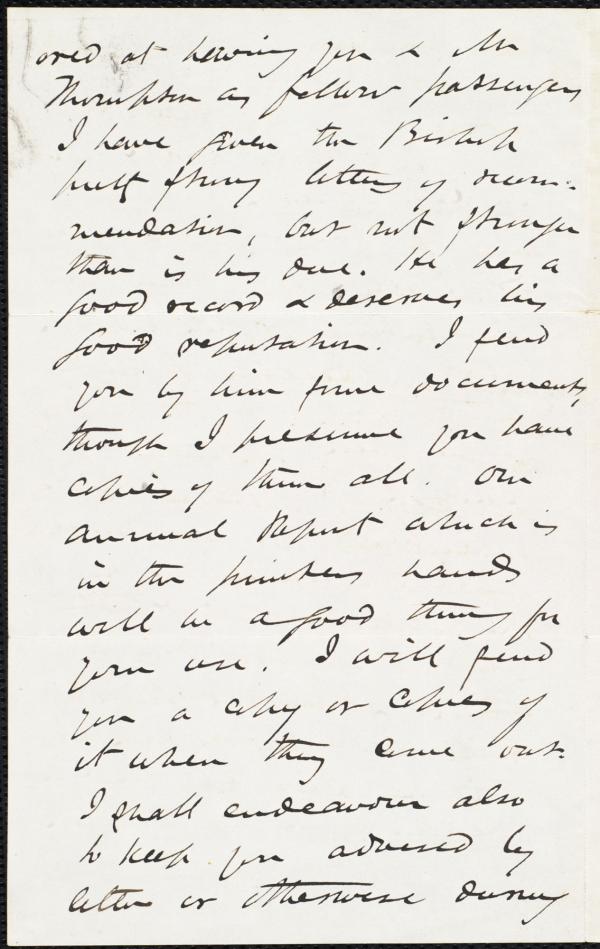 ored at having you & Mr
Thompson as fellow passengers
I have given the Bishop
pretty strong letters of recom-
mendation, but not stronger
than is his due. He has a
good record & deserves his
good reputation. I send
you by him some documents,
though I presume you have
copies of them all. Our
Annual Report which is
in the printers hands
will be a good thing for
your use. I will send
you a copy or copies of
it when they come out.
I shall endeavour also
to keep you advised by
letter or otherwise during